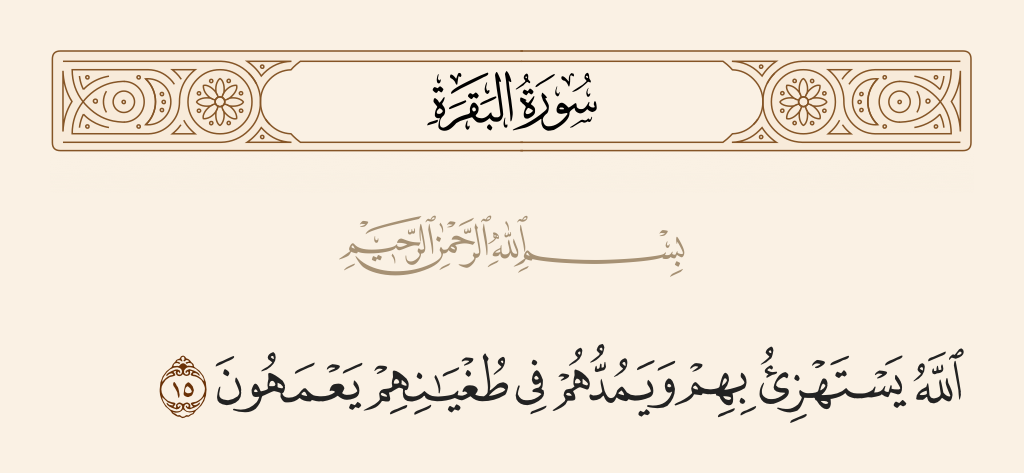 سُورَةُ البَقَرَةِ
بِسْمِ ٱللَّهِ ٱلرَّحْمَٰنِ ٱلرَّحِيمِ
ٱللَّهُ يَسْتَهْزِئُ بِهِمْ وَيَمُدُّهُمْ فِى طُغْيَـٰنِهِمْ يَعْمَهُونَ ١٥